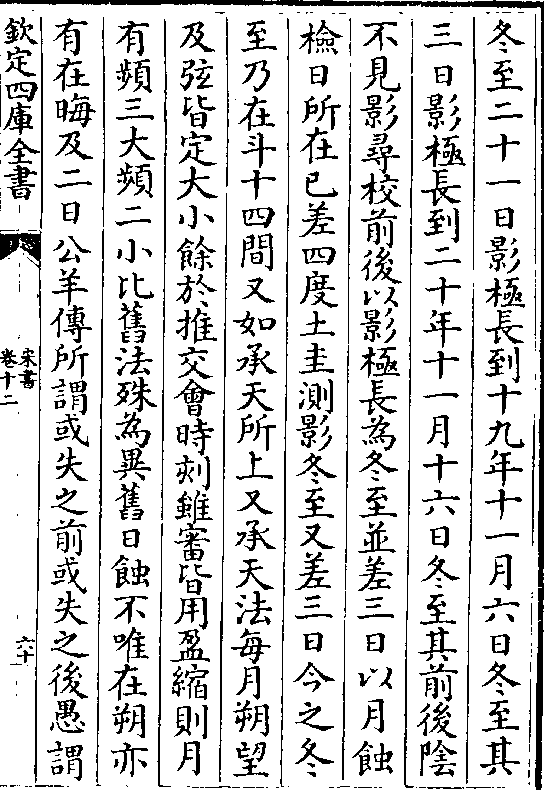 冬至二十一日影極長到十九年十一月六日冬至其
三日影極長到二十年十一月十六日冬至其前後陰
不見影尋校前後以影極長為冬至並差三日以月蝕
檢日所在已差四度土圭測影冬至又差三日今之冬
至乃在斗十四間又如承天所上又承天法每月朔望
及弦皆定大小餘於推交會時刻雖審皆用盈縮則月
有頻三大頻二小比舊法殊為異舊日蝕不唯在朔亦
有在晦及二日公羊傳所謂或失之前或失之後愚謂
欽定四庫全書
宋書
卷十二
六十